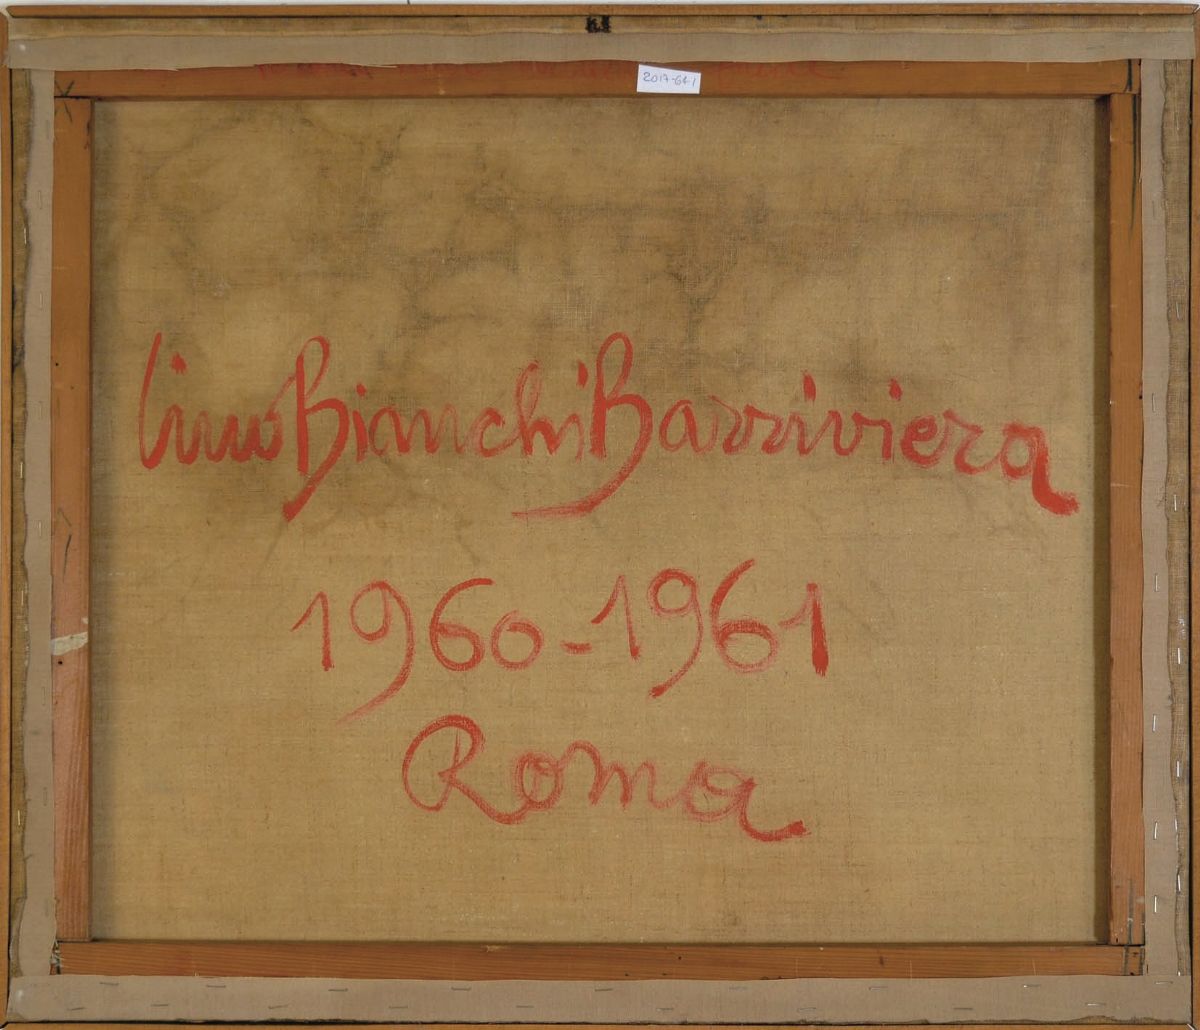 2017-641
Lino Bianchi Barriviera
1960-1961
Roma